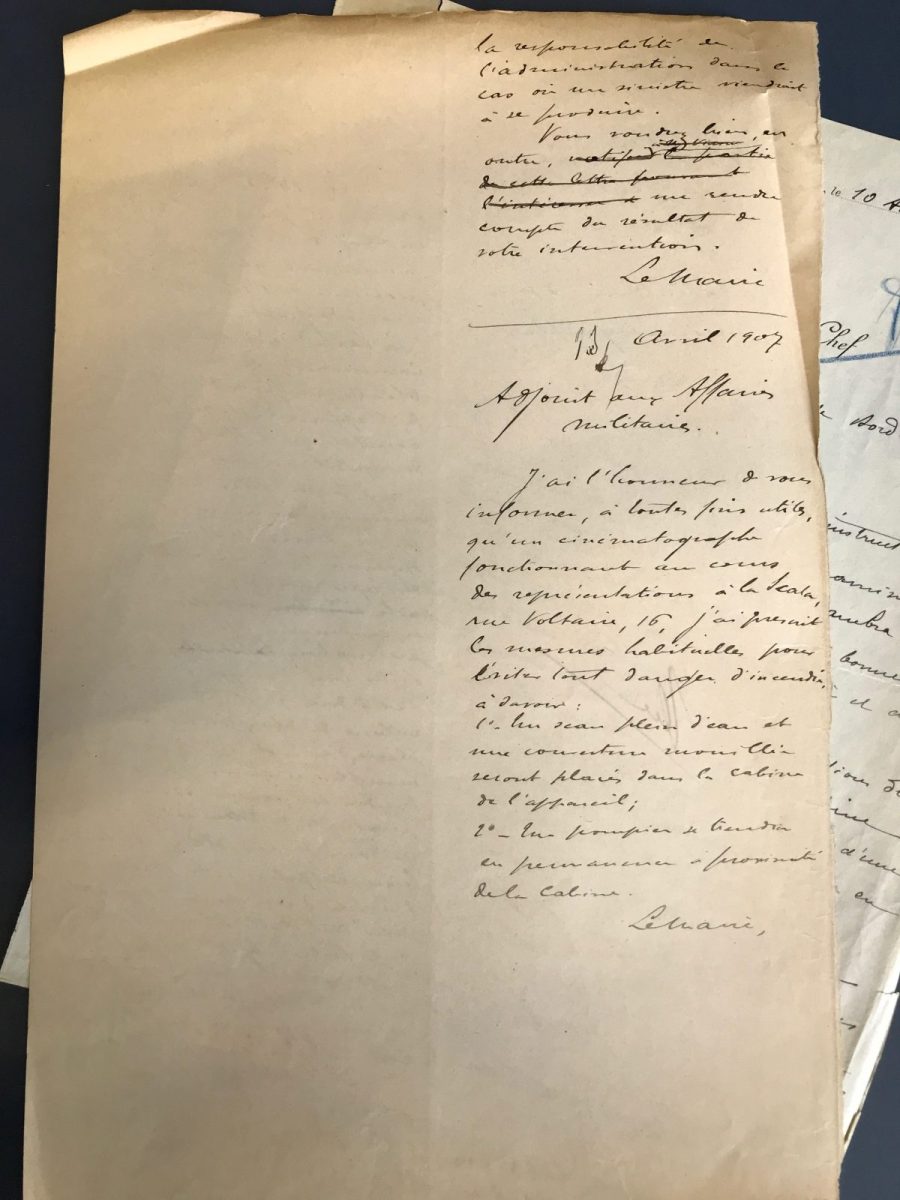 la responsabilité de
l'administration dans le
cas où un sinistre viendrait
à se produire.
Vous voudrez bien, en
outre, la partie
de cette lettre
me rendre
compte du résultat de
votre intervention.
Le Maire
13 Avril 1907
Adjoint aux Affaires
militaires.
J'ai l'honneur de vous
informer, à toutes fins utiles,
qu'un cinématographe
fonctionnant au cours
des représentations à la Scala,
rue Voltaire, 16, j'ai prescrit
les mesures habituelles pour
éviter tout danger d'incendie,
à savoir :
1° - Un seau plein d'eau et
une couverture mouillée
seront placés dans la cabine
de l'appareil ;
2° - Un pompier se tiendra
en permanence à proximité
de la cabine.
Le Maire,
le 10
Chef